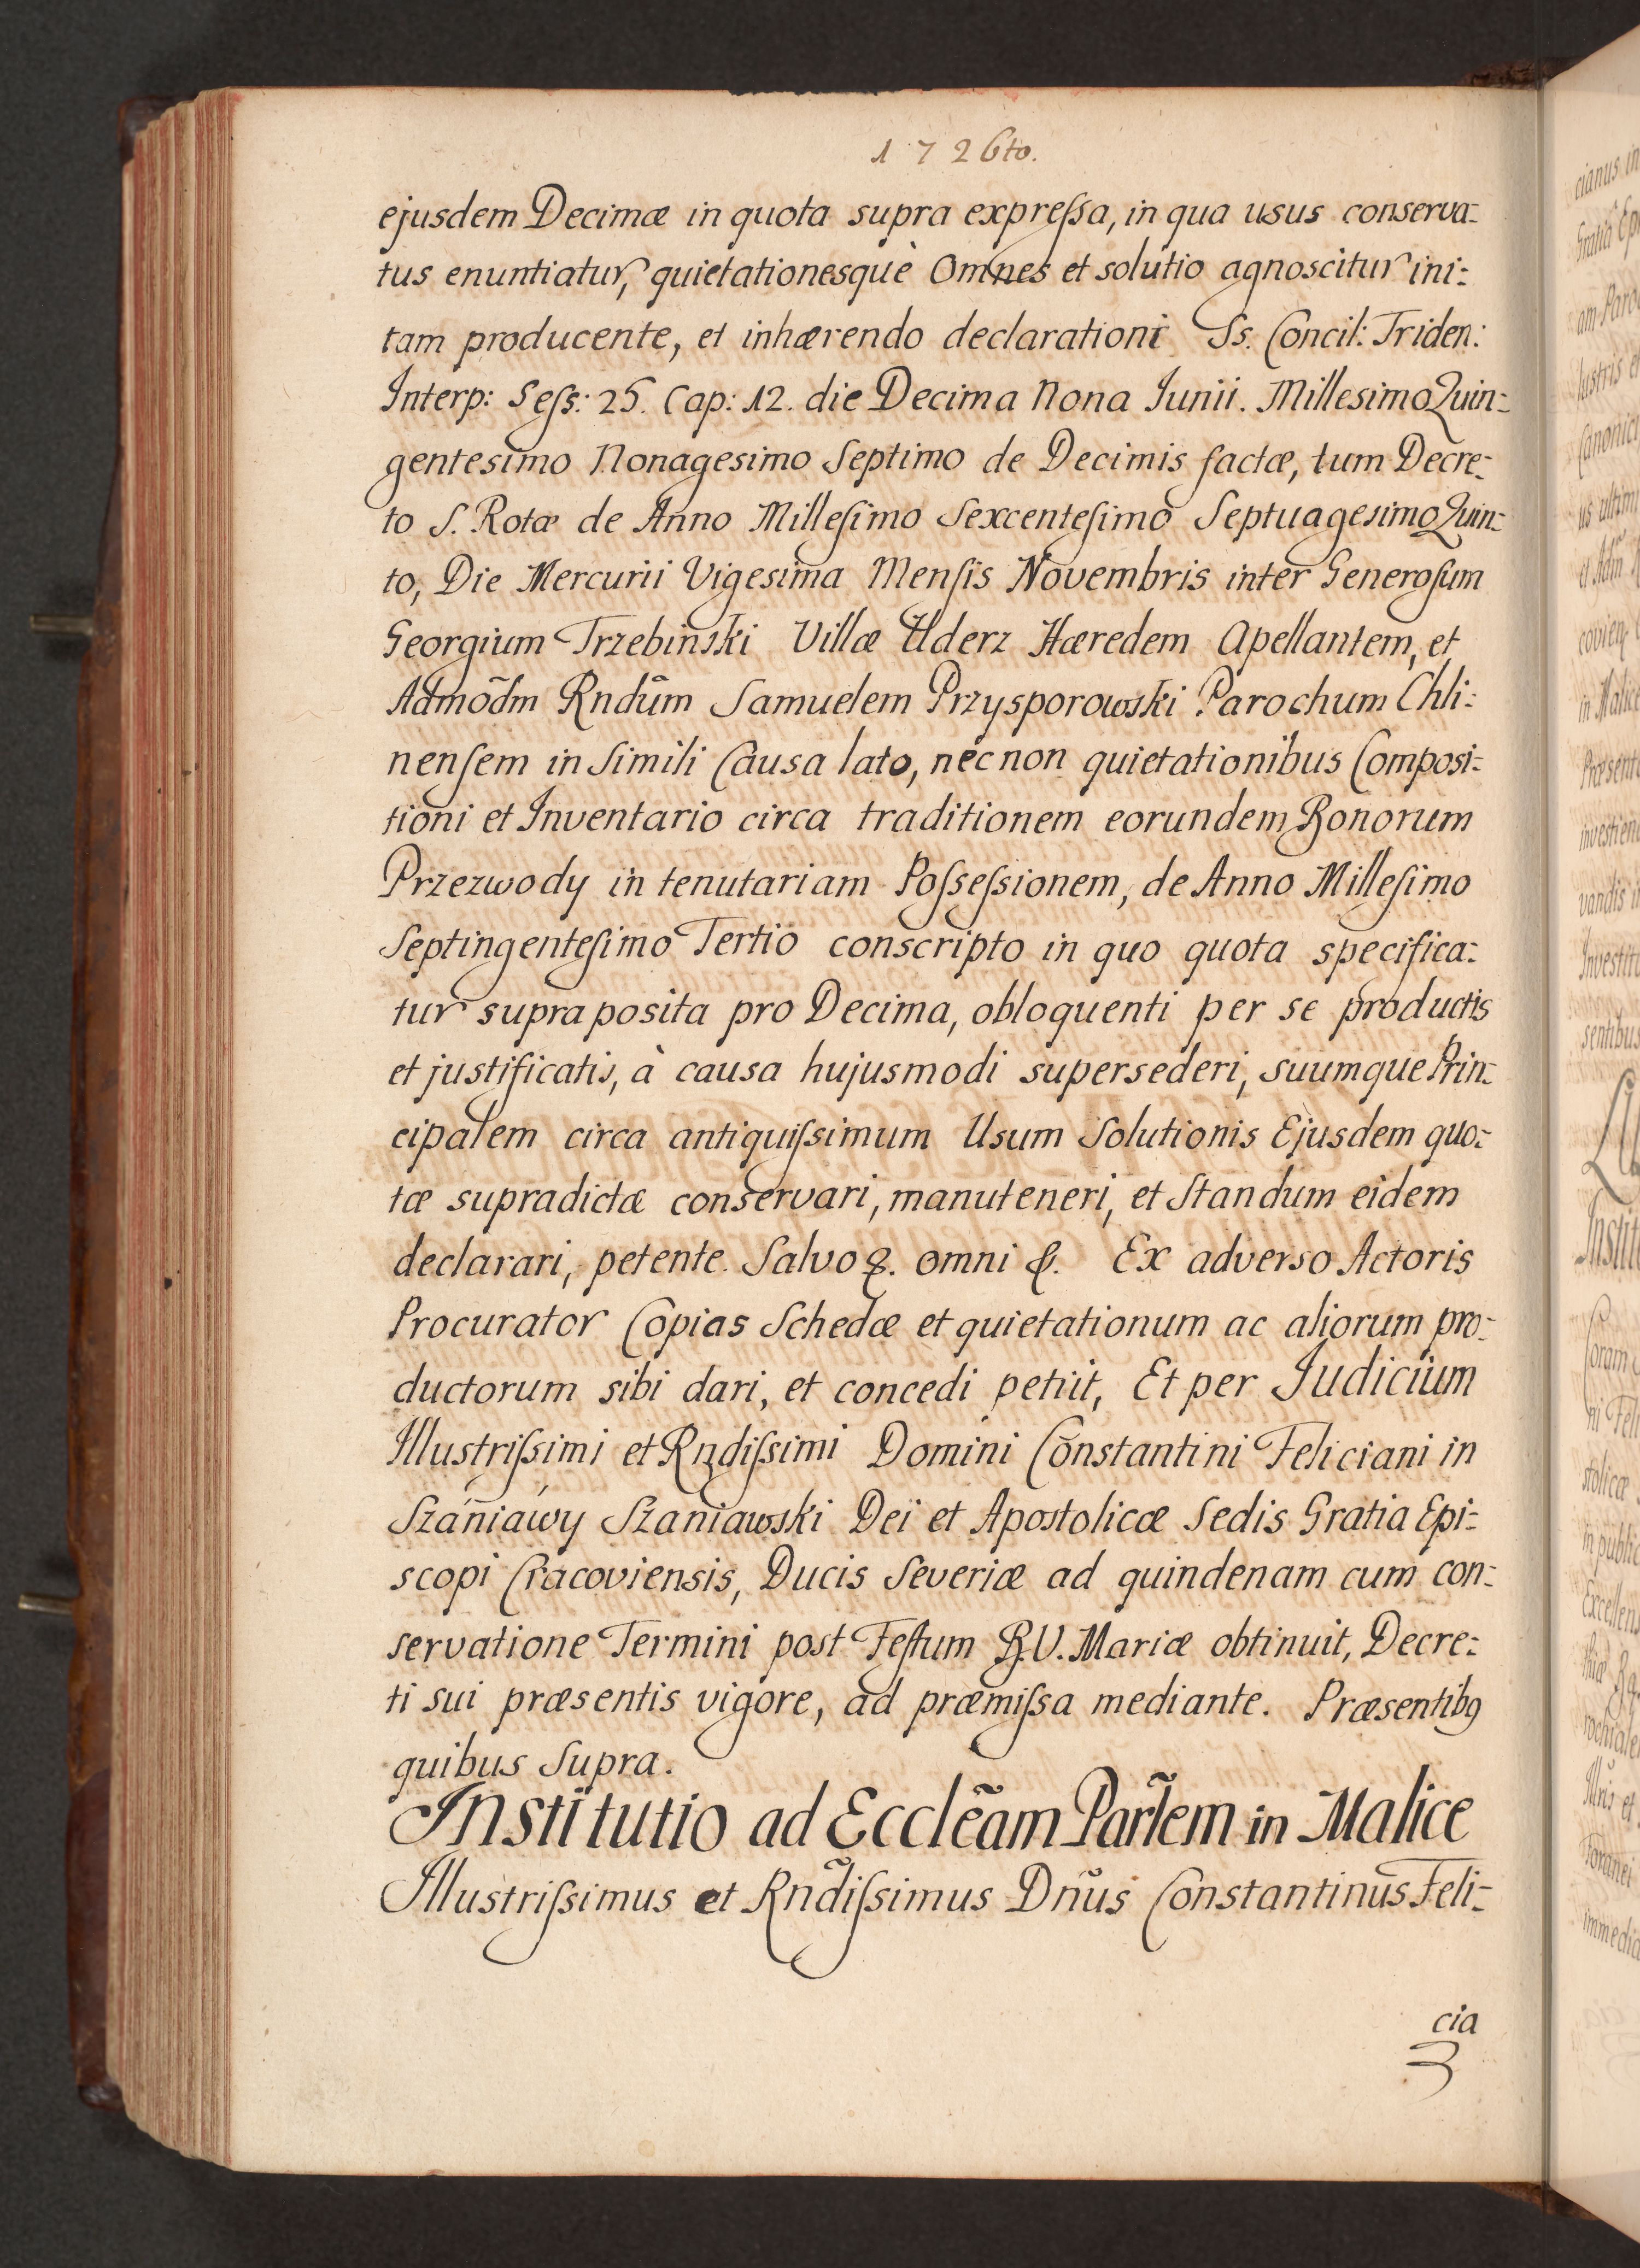 1726to.
ejusdem Decimæ in quota supra expreſsa, in qua usus conserva:
tus enuntiatur, quietationesquè Omnes et solutio agnoscitur ini:
tam producente, et inhærendo declarationi Ss. Concil: Triden:
Interp: Seſs: 25. Cap: 12. die Decima Nona Junii. Millesimo Quin:
gentesimo Nonagesimo Septimo de Decimis factæ, tum Decre:
to S. Rotæ de Anno Milleſimo Sexcenteſimo Septuagesimo Quin:
to, Die Mercurii Vigesima Menſis Novembris inter Generoſum
Georgium Trzebinski Villæ Uderz Hæredem Apellantem, et
Admõdm Rndũm Samuelem Przysporowski Parochum Chli:
nenſem in Simili Causa lato, nec non quietationibus Composi:
tioni et Inventario circa traditionem eorundem Bonorum
Przezwody in tenutariam Poſseſsionem, de Anno Milleſimo
Septingenteſimo Tertio conscripto in quo quota specifica:
tur supra posita pro Decima, obloquenti per se productis
et justificatis, à causa hujusmodi supersederi, suumque Prin:
cipalem circa antiquiſsimum Usum Solutionis Ejusdem quo:
tæ supradictæ conservari, manuteneri, et Standum eidem
declarari, petente. Salvo &. omni &. Ex adverso Actoris
Procurator Copias Schedæ et quietationum ac aliorum pro:
ductorum sibi dari, et concedi petiit, Et per Judicium
Illustriſsimi et Rndiſsimi Domini Constantini Feliciani in
Szaniawy Szaniawski Dei et Apostolicæ Sedis Gratia Epi:
scopi Cracoviensis, Ducis Severiæ ad quindenam cum con:
servatione Termini post Feſtum B.V. Mariæ obtinuit, Decre:
ti sui præsentis vigore, ad præmiſsa mediante. Præsentibꝯ
quibus Supra.
Institutio ad Ecclẽam Parl̃em in Malice
Illustriſsimus et Rnd̃iſsimus Dnũs Constantinus Feli:
cia